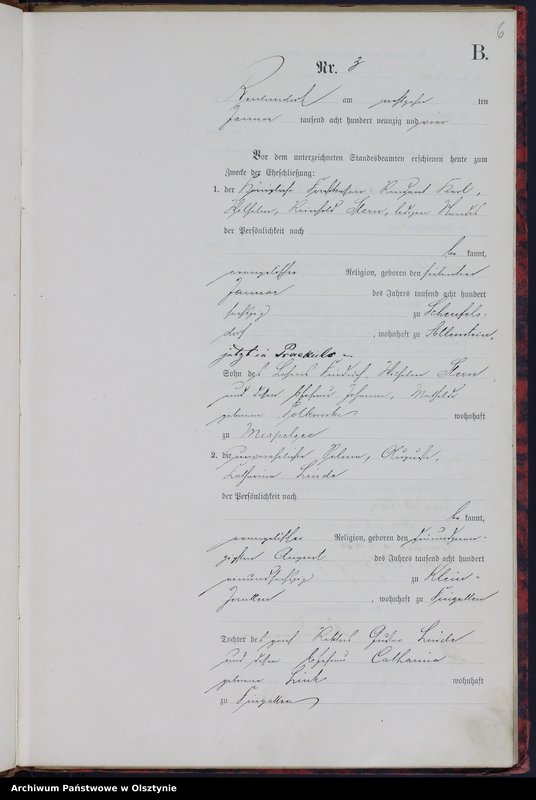 6
B.
Nr. 3
am ten
Januar tausend acht hundert neunzig und vier
Vor dem unterzeichneten Standesbeamten erschienen heute zum
Zwecke der Eheschließung:
1. der Königliche Rendant Karl,
Wilhelm, Reinhold Stern, ledigen Standes
der Persönlichkeit nach
be kannt,
evangelischer Religion, geboren den siebenten
Januar des Jahres tausend acht hundert
sechszig zu Scheufels-
dorf, wohnhaft zu Allenstein,
jetzt in Proekuls
Sohn des Lehrers Friedrich, Wilhelm Stern
und dessen Ehefrau Johanna, Mathilde
geborene wohnhaft
zu
2. die unverehelichte Selma, Auguste,
Catharina Linde
der Persönlichkeit nach
be kannt,
evangelischer Religion, geboren den dreiundzwan-
zigsten August des Jahres tausend acht hundert
neunundsechszig zu Klein-
, wohnhaft zu Fingatten
Tochter des Gustav Linde
und dessen Ehefrau Catharina
geborene Link wohnhaft
zu Fingatten
Archiwum Państwowe w Olsztynie